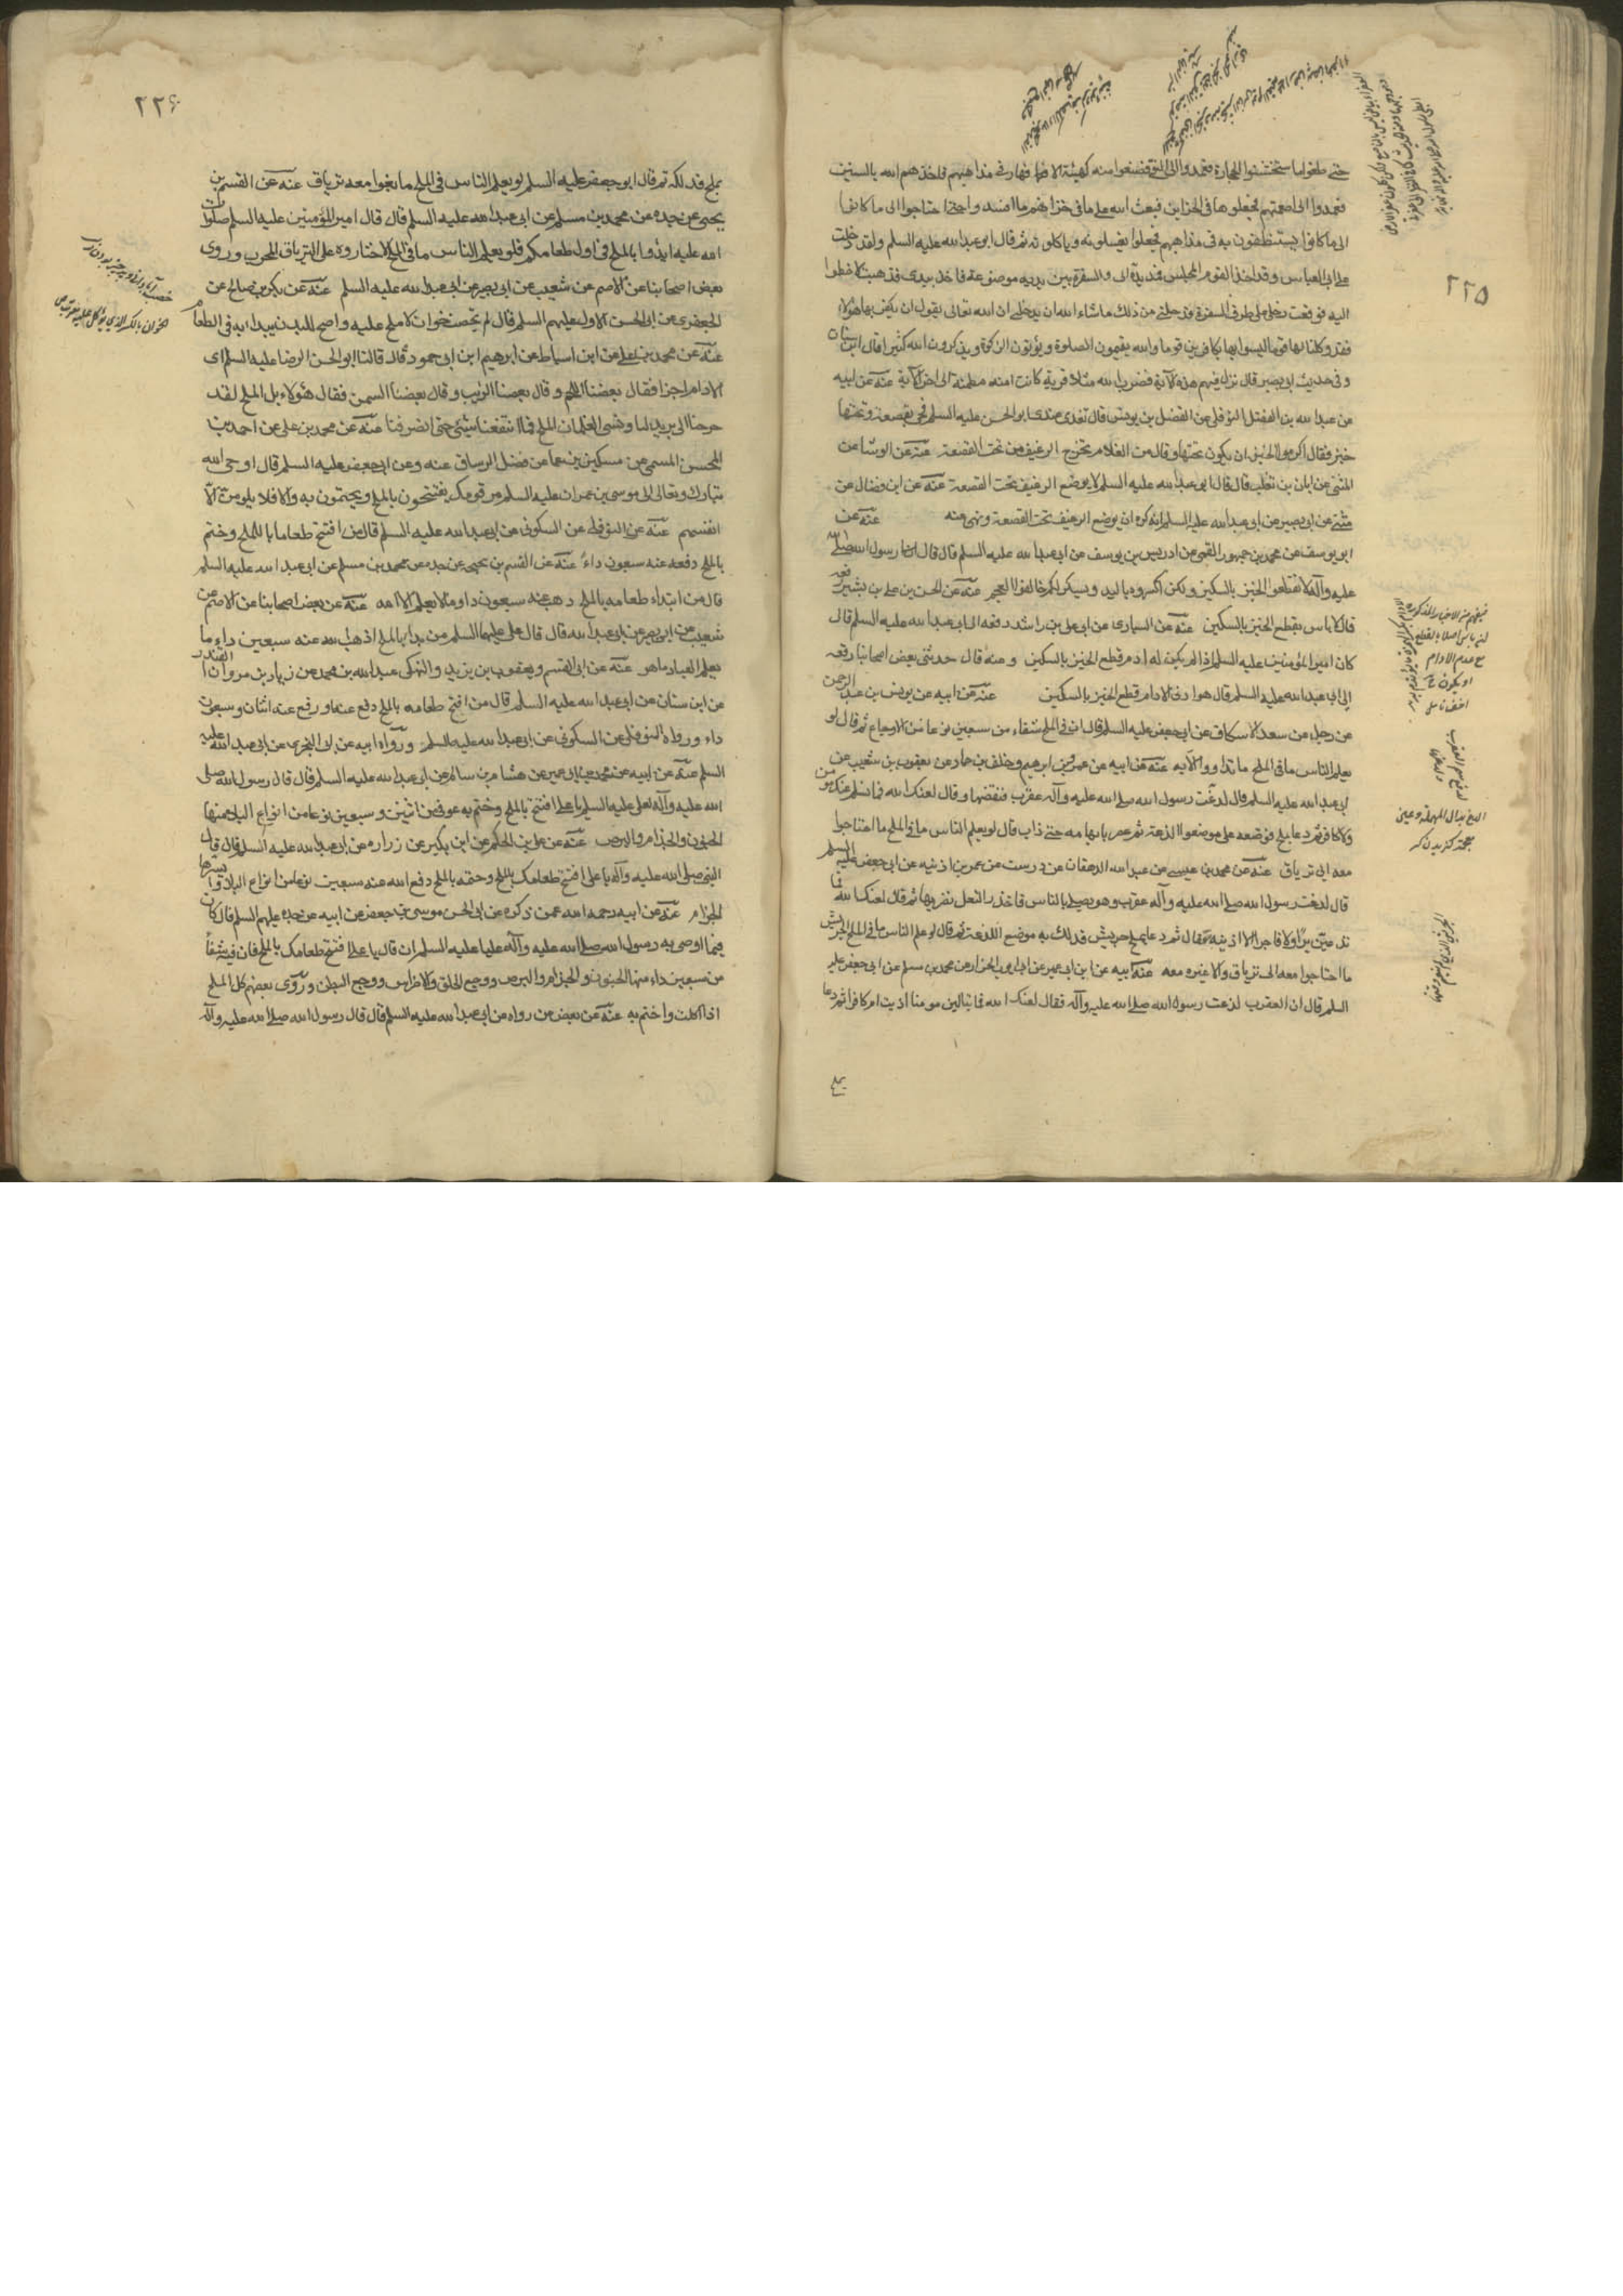 ٢٢٥
حتى طغوا ما استخشنوا الحجارة فعمدوا الى النقى فصنعوا منه كهيئة الافهار فى مذاهبهم فاخذهم الله بالسنين
فعمدوا الى اطعمتهم فجعلوها فى الخزاين فبعث الله على ما فى خزاينهم ما افسده حتى احتاجوا الى ما كانوا
الى ما كانوا يستنظفون به فى مذاهبهم فجعلوا يغسلونه وياكلونه ثم قال ابو عبد الله عليه السلم ولقد دخلت
على ابى العباس وقد اخذ القوم المجلس فمد يده الى والسفرة بين يديه موضوعة فاخذ بيدى فذهبت لاخطوا
اليه فوقعت رجلى على طرف السفرة فدخلنى من ذلك ما شاء الله ان يدخلنى ان الله تعالى يقول ان يكفر بها هؤلاء
فقد وكلنا بها قوما ليسوا بها بكافرين قوما والله يقيمون الصلوة ويؤتون الزكوة ويذكرون الله كثيرا قال ابن سنان
وفى حديث ابى بصير قال نزلت فيهم هذه الاية فضرب الله مثلا قرية كانت امنة مطمئنة الى اخر الاية عنه عن ابيه
عن عبد الله بن الفضل النوفلى عن الفضل بن يونس قال تغدى عندى ابو الحسن عليه السلم فجئ بقصعة وتحتها
خبز فقال اكرموا الخبز ان يكون تحتها وقال من الغلام تخرج الرغيف من تحت القصعة عنه عن الوشا عن
المثنى عن ابان بن تغلب قال قال ابى عبد الله عليه السلم لا يوضع الرغيف تحت القصعة عنه عن ابن فضال عن
مثنى عن ابى بصير عن ابى عبد الله عليه السلم انه كره ان يوضع الرغيف تحت القصعة ونهى عنه عنه عن
ابو يوسف عن محمد بن جمهور القمى عن ادريس بن يوسف عن ابى عبد الله عليه السلم قال قال لنا رسول الله صلى الله
عليه وآله لا تقطعوا الخبز بالسكين ولكن اكسروه باليد وليكسر لكم خالفوا العجم عنه عن الحسن بن على بن بشير رفعه
قال لا باس بقطع الخبز بالسكين عنه عن السيارى عن ابى على بن راشد رفعه الى ابى عبد الله عليه السلم قال
كان امير المؤمنين عليه السلم اذا لم يكن له ادم قطع الخبز بالسكين ومنه قال حدثنى بعض اصحابنا رفعه
الى ابى عبد الله عليه السلم قال هو ادنى الادام قطع الخبز بالسكين عنه عن ابيه عن يونس بن عبد الرحمن
عن رجل عن سعد الاسكاف عن ابى جعفر عليه السلم قال ان فى الملح شفاء من سبعين نوعا من الاوجاع ثم قال لو
يعلم الناس ما فى الملح ما تداووا الا به عنه عن ابيه عن عمرو بن ابرهيم وخلف بن حماد عن يعقوب بن شعيب عن
ابى عبد الله عليه السلم قال لدغت رسول الله صلى الله عليه وآله عقرب فنفضها وقال لعنك الله فما يسلم عنك مؤمن
ولا كافر ثم دعا بملح فوضعه على موضع اللدغة ثم عصره بابهامه حتى ذاب قال لو يعلم الناس ما فى الملح ما احتاجوا
معه الى ترياق عنه عن محمد بن عيسى عن عبد الله الدهقان عن درست عن عمر بن اذينه عن ابى جعفر عليه السلم
قال لدغت رسول الله صلى الله عليه وآله عقرب وهو يصلى بالناس فاخذ النعل فضربها ثم قال لعنك الله فما
تدعين برا ولا فاجرا الا اذيته فقال ثم دعا بملح جريش فدلك به موضع اللدغة ثم قال لو علم الناس ما فى الملح الجريش
ما احتاجوا معه الى ترياق ولا غيره معه عنه ابيه عن ابن ابى عمير عن ابى ايوب الخزاز عن محمد بن مسلم عن ابى جعفر عليه
السلم قال ان العقرب لدغت رسول الله صلى الله عليه وآله فقال لعنك الله فما تبالين مومنا اذيت ام كافرا ثم دعا
بملح
٢٢۶
بملح فدلكه ثم قال ابو جعفر عليه السلم لو يعلم الناس فى الملح ما بغوا معه ترياق عنه عن القسم بن
يحيى عن جده عن محمد بن مسلم عن ابى عبد الله عليه السلم قال قال امير المؤمنين عليه السلم صلوات
الله عليه ابدؤا بالملح فى اول طعامكم فلو يعلم الناس ما فى الملح لاختاروه على الترياق المجرب وروى
بعض اصحابنا عن الاصم عن شعيب عن ابى بصير عن ابى عبد الله عليه السلم عنه عن بكر بن صالح عن
الجعفرى عن ابى الحسن الاول عليهم السلم قال لم تخصب خوان لا ملح عليه واصح للبدن يبدا به فى الطعام
عنه عن محمد بن على عن ابن اسباط عن ابرهيم ابن ابى حمود قال قال لنا ابو الحسن الرضا عليه السلم اى
الادام اجزا فقال بعضنا اللحم وقال بعضنا الزيت وقال بعضنا السمن فقال هؤلاء بل الملح لقد
خرجنا الى يريد لنا ونسى الغلمان الملح فما انتفعنا بشئ حتى انصرفنا عنه عن محمد بن على عن احمد بن
المحسن المسمى عن مسكين بن عمار عن فضل الرسان عنه وعن ابى جعفر عليه السلم قال اوحى الله
تبارك وتعالى الى موسى بن عمران عليه السلم مر قومك يفتتحون بالملح ويختمون به والا فلا يلومن الا
انفسهم عنه عن النوفلى عن السكونى عن ابى عبد الله عليه السلم قال من افتتح طعاما بالملح وختم
بالملح دفعه عنه سبعون داء عنه عن القسم بن يحيى عن جده عن محمد بن مسلم عن ابى عبد الله عليه السلم
قال من ابتداء طعامه بالملح ذهب عنه سبعون داء وما لا يعلم الا الله عنه عن بعض اصحابنا عن الاصم عن
شعيب عن ابى بصير عن ابى عبد الله قال قال على عليهما السلم من بدا بالملح اذهب الله عنه سبعين داء ما
يعلم العباد ما هو عنه عن ابى القسم ويعقوب بن يزيد والنهكى عبد الله بن محمد عن زياد بن مروان القندى
عن ابن سنان عن ابى عبد الله عليه السلم قال من افتتح طعامه بالملح دفع عنه او رفع عنه اثنان وسبعون
داء ورواه النوفلى عن السكونى عن ابى عبد الله عليه السلم ورواه ابيه عن ابى البخترى عن ابى عبد الله عليه
السلم عنه عن ابيه عن محمد بن ابى عمير عن هشام بن سالم عن ابى عبد الله عليه السلم قال قال رسول الله صلى
الله عليه وآله لعلى عليه السلم يا على افتتح بالملح وختم به عوفى من اثنين وسبعين نوعا من انواع البلاء منها
الجنون والجذام والبرص عنه عن على بن الحكم عن ابن بكير عن زراره عن ابى عبد الله عليه السلم قال قال
النبى صلى الله عليه وآله يا على افتتح طعامك بالملح وختمه بالملح دفع الله عنه سبعين نوعا من انواع البلاء ايسرها
الجذام عنه عن ابيه رحمه الله عمن ذكره عن ابى الحسن موسى بن جعفر عن ابيه عن جده عليهم السلم قال كان
فيما اوصى به رسول الله صلى الله عليه وآله عليا عليه السلم ان قال يا على افتتح طعامك بالملح فان فيه شفاء
من سبعين داء منها الجنون والجذام والبرص ووجع الحلق والاضراس ووجع البطن وروى بعضهم كل الملح
اذا اكلت واختم به عنه عن بعض من رواه عن ابى عبد الله عليه السلم قال قال رسول الله صلى الله عليه وآله